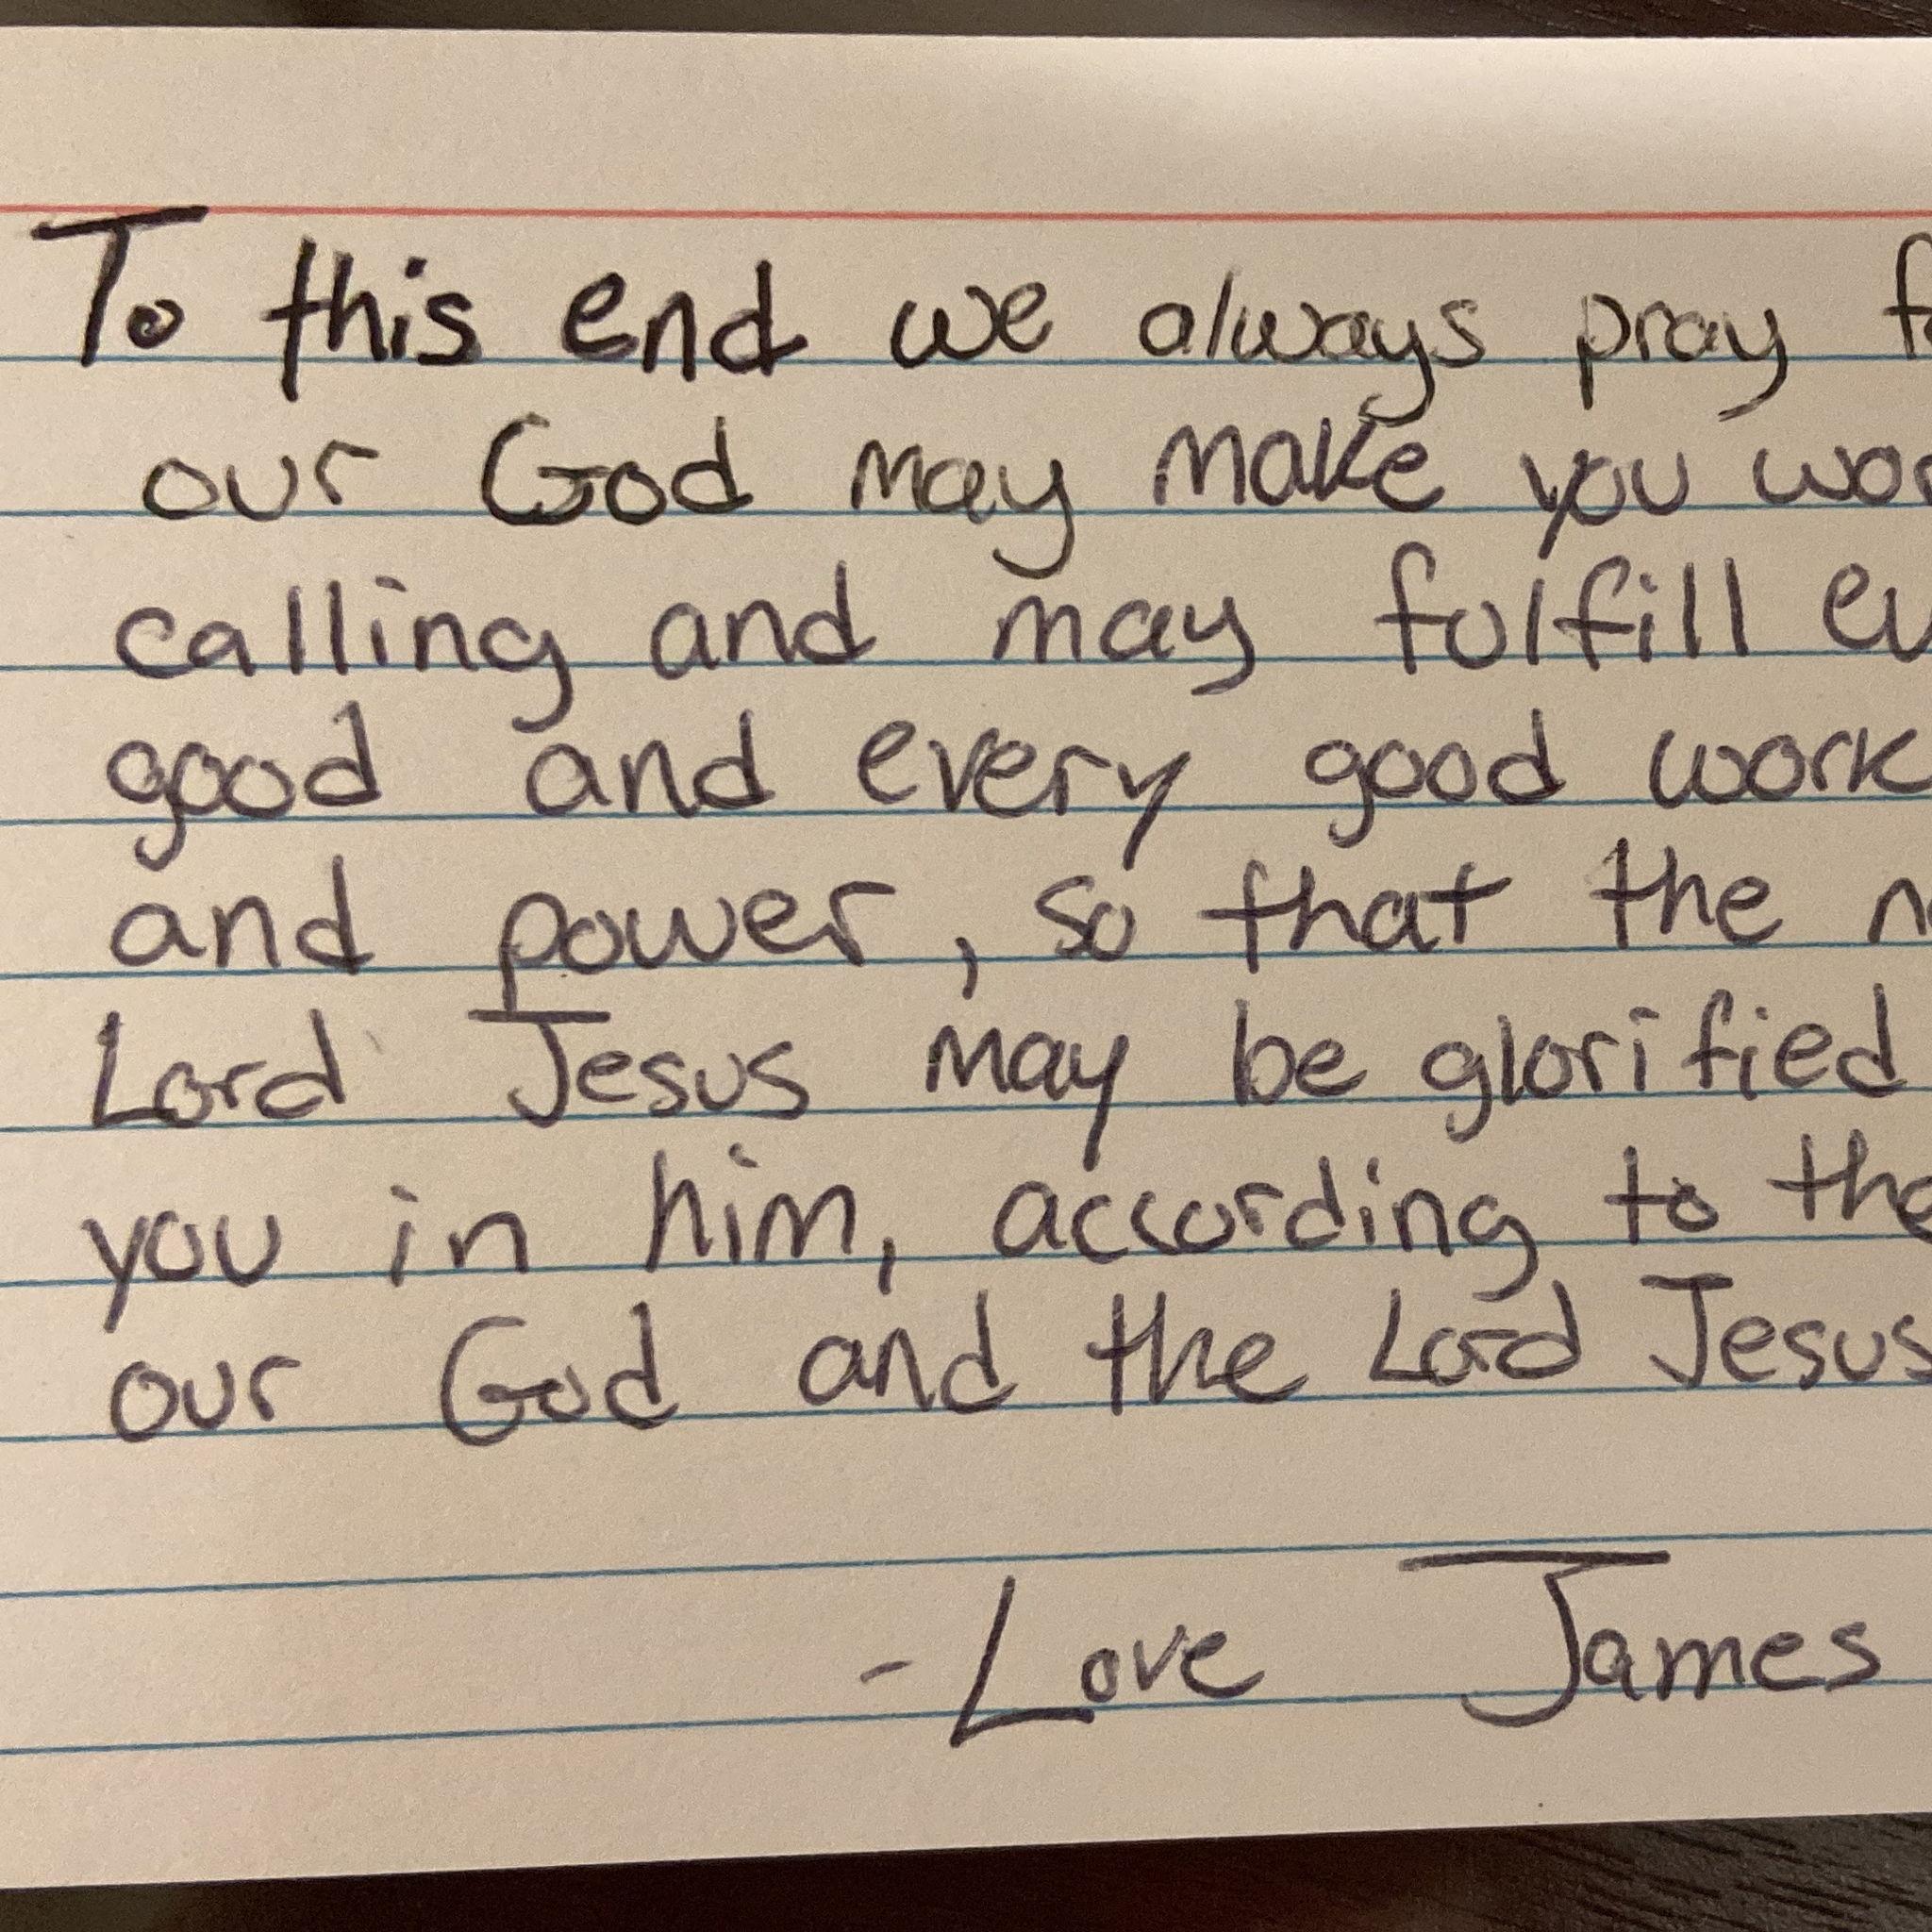 To this end we always pray
our God may make you
calling and may fulfill
good and every good work
and power, so that the
Lord Jesus may be glorified
you in him, according to the
our God and the Lord Jesus
- Love James